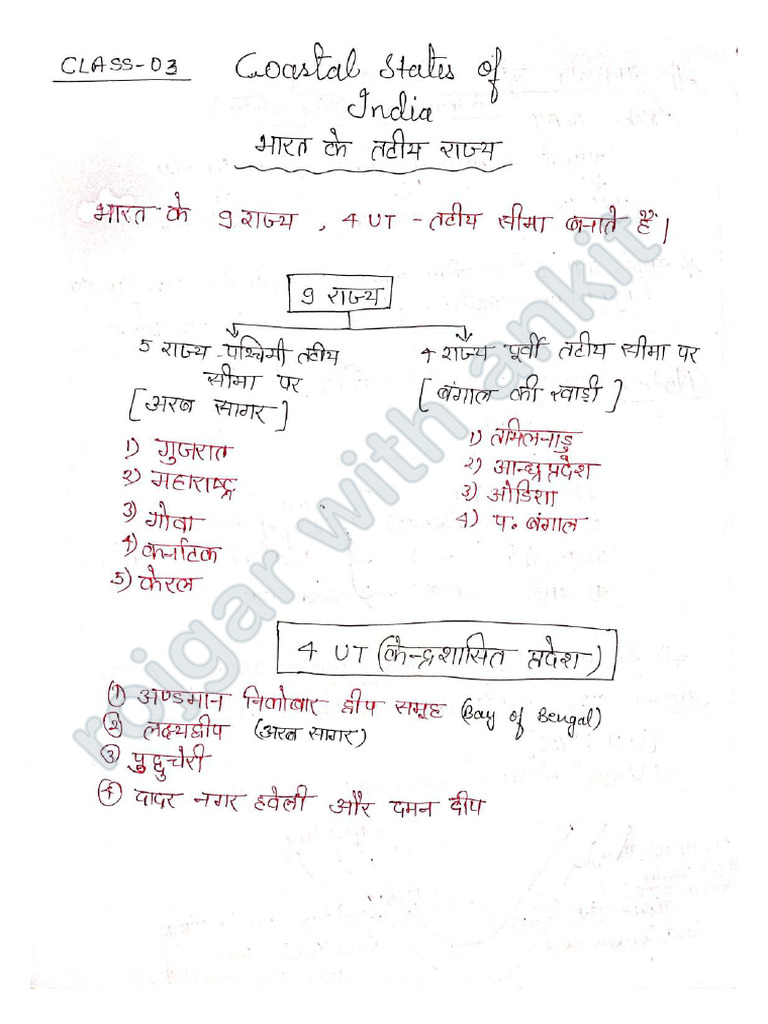 CLASS-03
Coastal States of
India
भारत के तटीय राज्य
भारत के 9 राज्य , 4 UT - तटीय सीमा बनाते हैं।
9 राज्य
5 राज्य - पश्चिमी तटीय
सीमा पर
[अरब सागर]
1) गुजरात
2) महाराष्ट्र
3) गोवा
4) कर्नाटक
5) केरल
4 राज्य पूर्वी तटीय सीमा पर
[बंगाल की खाड़ी]
1) तमिलनाडु
2) आन्ध्रप्रदेश
3) ओडिशा
4) प. बंगाल
4 UT (केन्द्रशासित प्रदेश)
① अण्डमान निकोबार द्वीप समूह (Bay of Bengal)
② लक्ष्यद्वीप (अरब सागर)
③ पुद्दुचेरी
④ दादर नगर हवेली और दमन दीप
rojgar with ankit